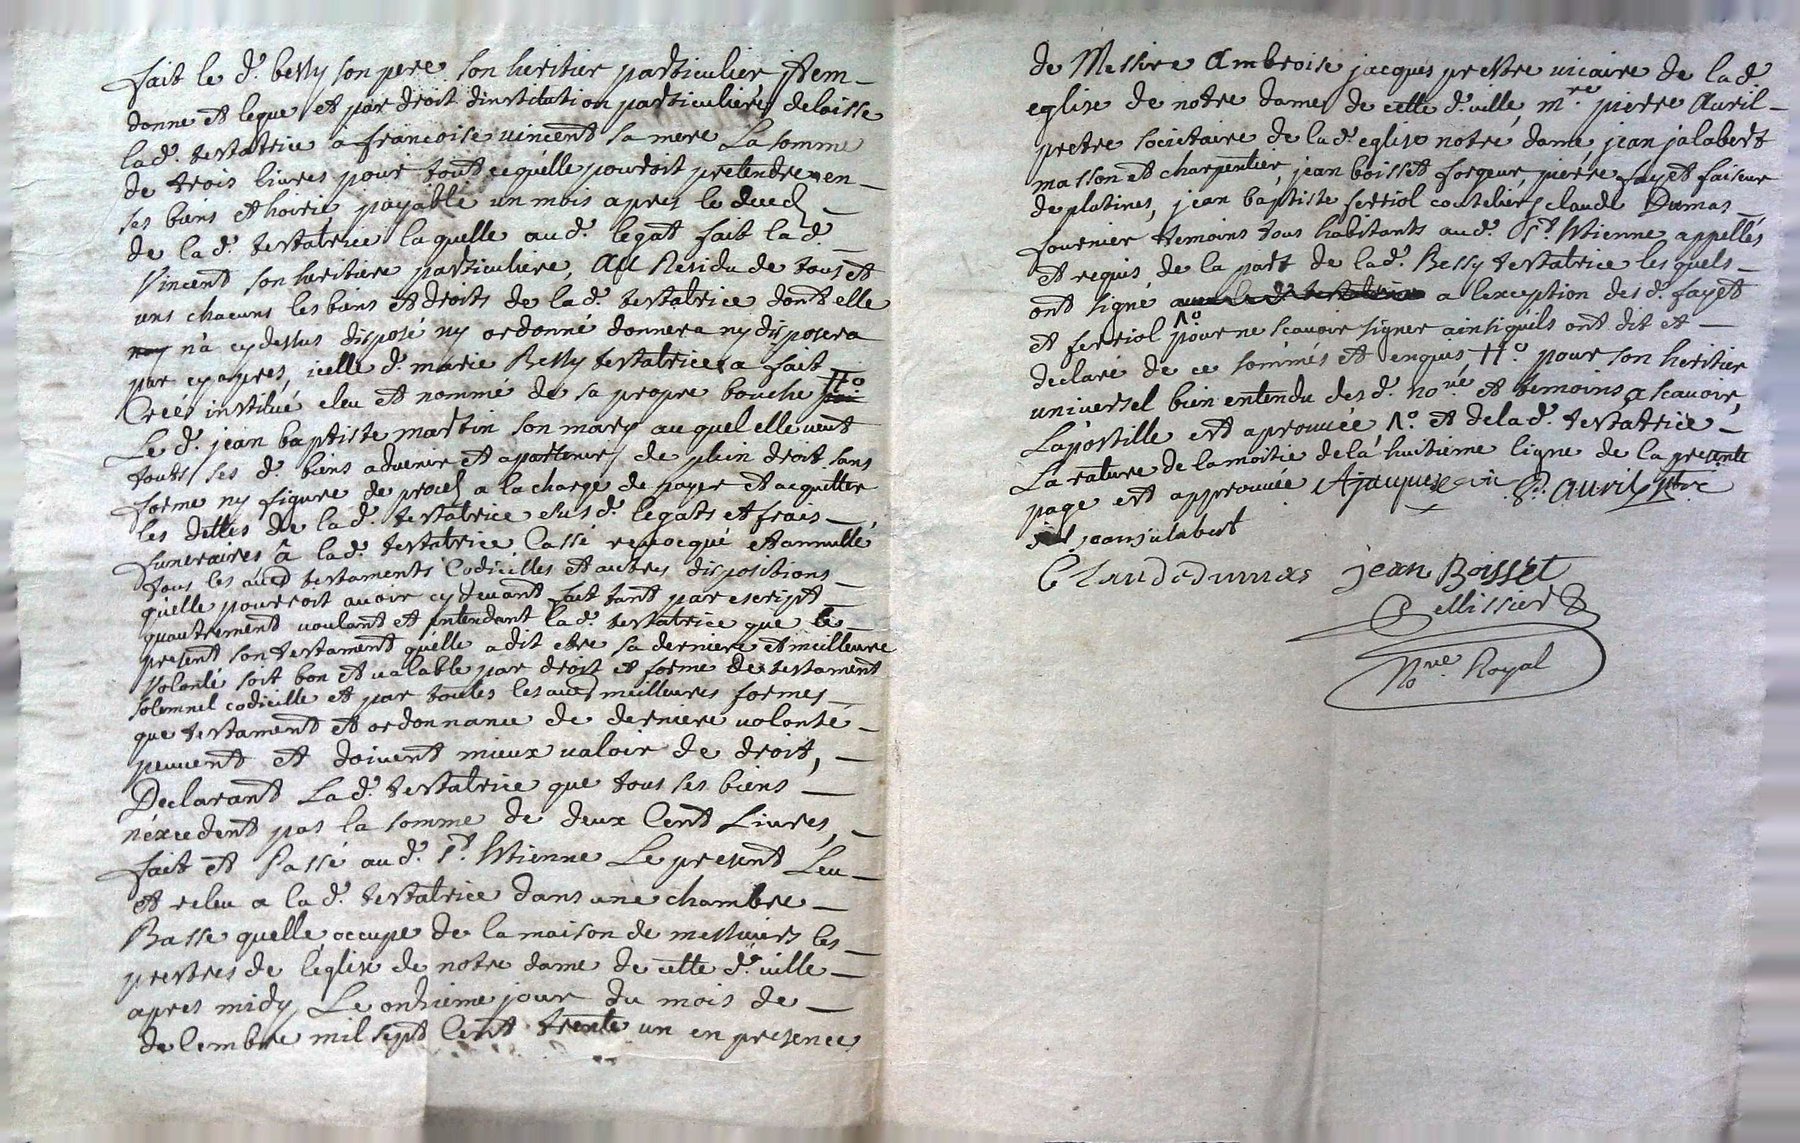 fait le d. bessy son pere son heritier particulier, item –
donne et legue et par droit dinstitution particuliere delaisse
lad. testatrice a francoise vincent sa mere La somme
de trois livres pour tout ce quelle pourroit pretendre en –
ses biens et hoirie, payable un mois apres le deces –
de lad. testatrice laquelle aud. legat fait lad. –
Vincent son heritiere particuliere, Au Residu de tous et
uns chacuns les biens et droits de lad. testatrice dont elle
na cy dessus disposé ny ordonné donnera ny disposera
par cy apres, icelle d. marie Bessy testatrice a fait
Creé institué eleu et nommé de sa propre bouche #.o
Le d. jean baptiste martin son mary auquel elle veut
touts ses d. biens advenir et apartenir de plein droit sans
forme ny figure de proces a la charge de payer et acquitter
les dettes de lad. testatrice susd. legats et frais –
funeraires â lad. testatrice, Cassé revocqué et annullé
tous les autres testaments Codicilles et autres dispositions –
quelle pourroit avoir cy devant fait tant par escript –
quautrement voulant et entendant lad. testatrice que le –
present son testament quelle a dit etre sa derniere et meilleure
volonté soit bon et valable par droit et forme de testament
solemnel codicille et par toutes les autres meilleures formes –
que testament et ordonnance de derniere volonté –
peuvent et doivent mieux valoir de droit, –
Declarant Lad. testatrice que tous ses biens –
néxcedent pas la somme de deux Cent Livres, –
fait et Passé aud. St. Etienne Le present Leu –
et releu a lad. testatrice dans une chambre –
Basse quelle occupe de la maison de messieurs les –
prestres de léglise de notre dame de cette d. ville –
apres midy Le onzieme jour du mois de –
decembre mil sept Cent trente un en presence
de Messire Ambroise jacques prestre vicaire de lad.
eglise de notre dame de cette d. ville, mre. pierre Avril –
pretre societaire de lad. eglise notre dame, jean jalabert
masson et charpentier, jean boisset forgeur, pierre fayet faiseur
de platines, jean baptiste ferriol coutelier, claude Dumas –
fournier temoins tous habitants aud. St. Etienne appellés
et requis de la part de lad. Bessy testatrice lesquels –
ont signé a lexception desd. fayet
et ferriol Λo pour ne scavoir signer ainsi quils ont dit et –
declaré de ce sommés et enquis #.o pour son heritier
universel bien entendu desd. nore. et temoins a scavoir,
Lapostille est aprouvée Λ.o et de lad. testatrice –
La rature de la moitié de la huitieme ligne de la presente
page est approuvée Ajacques P. avril ptre
jean jalabert
Claude dumas jean Boisset
Pellissier
Nore. Royal